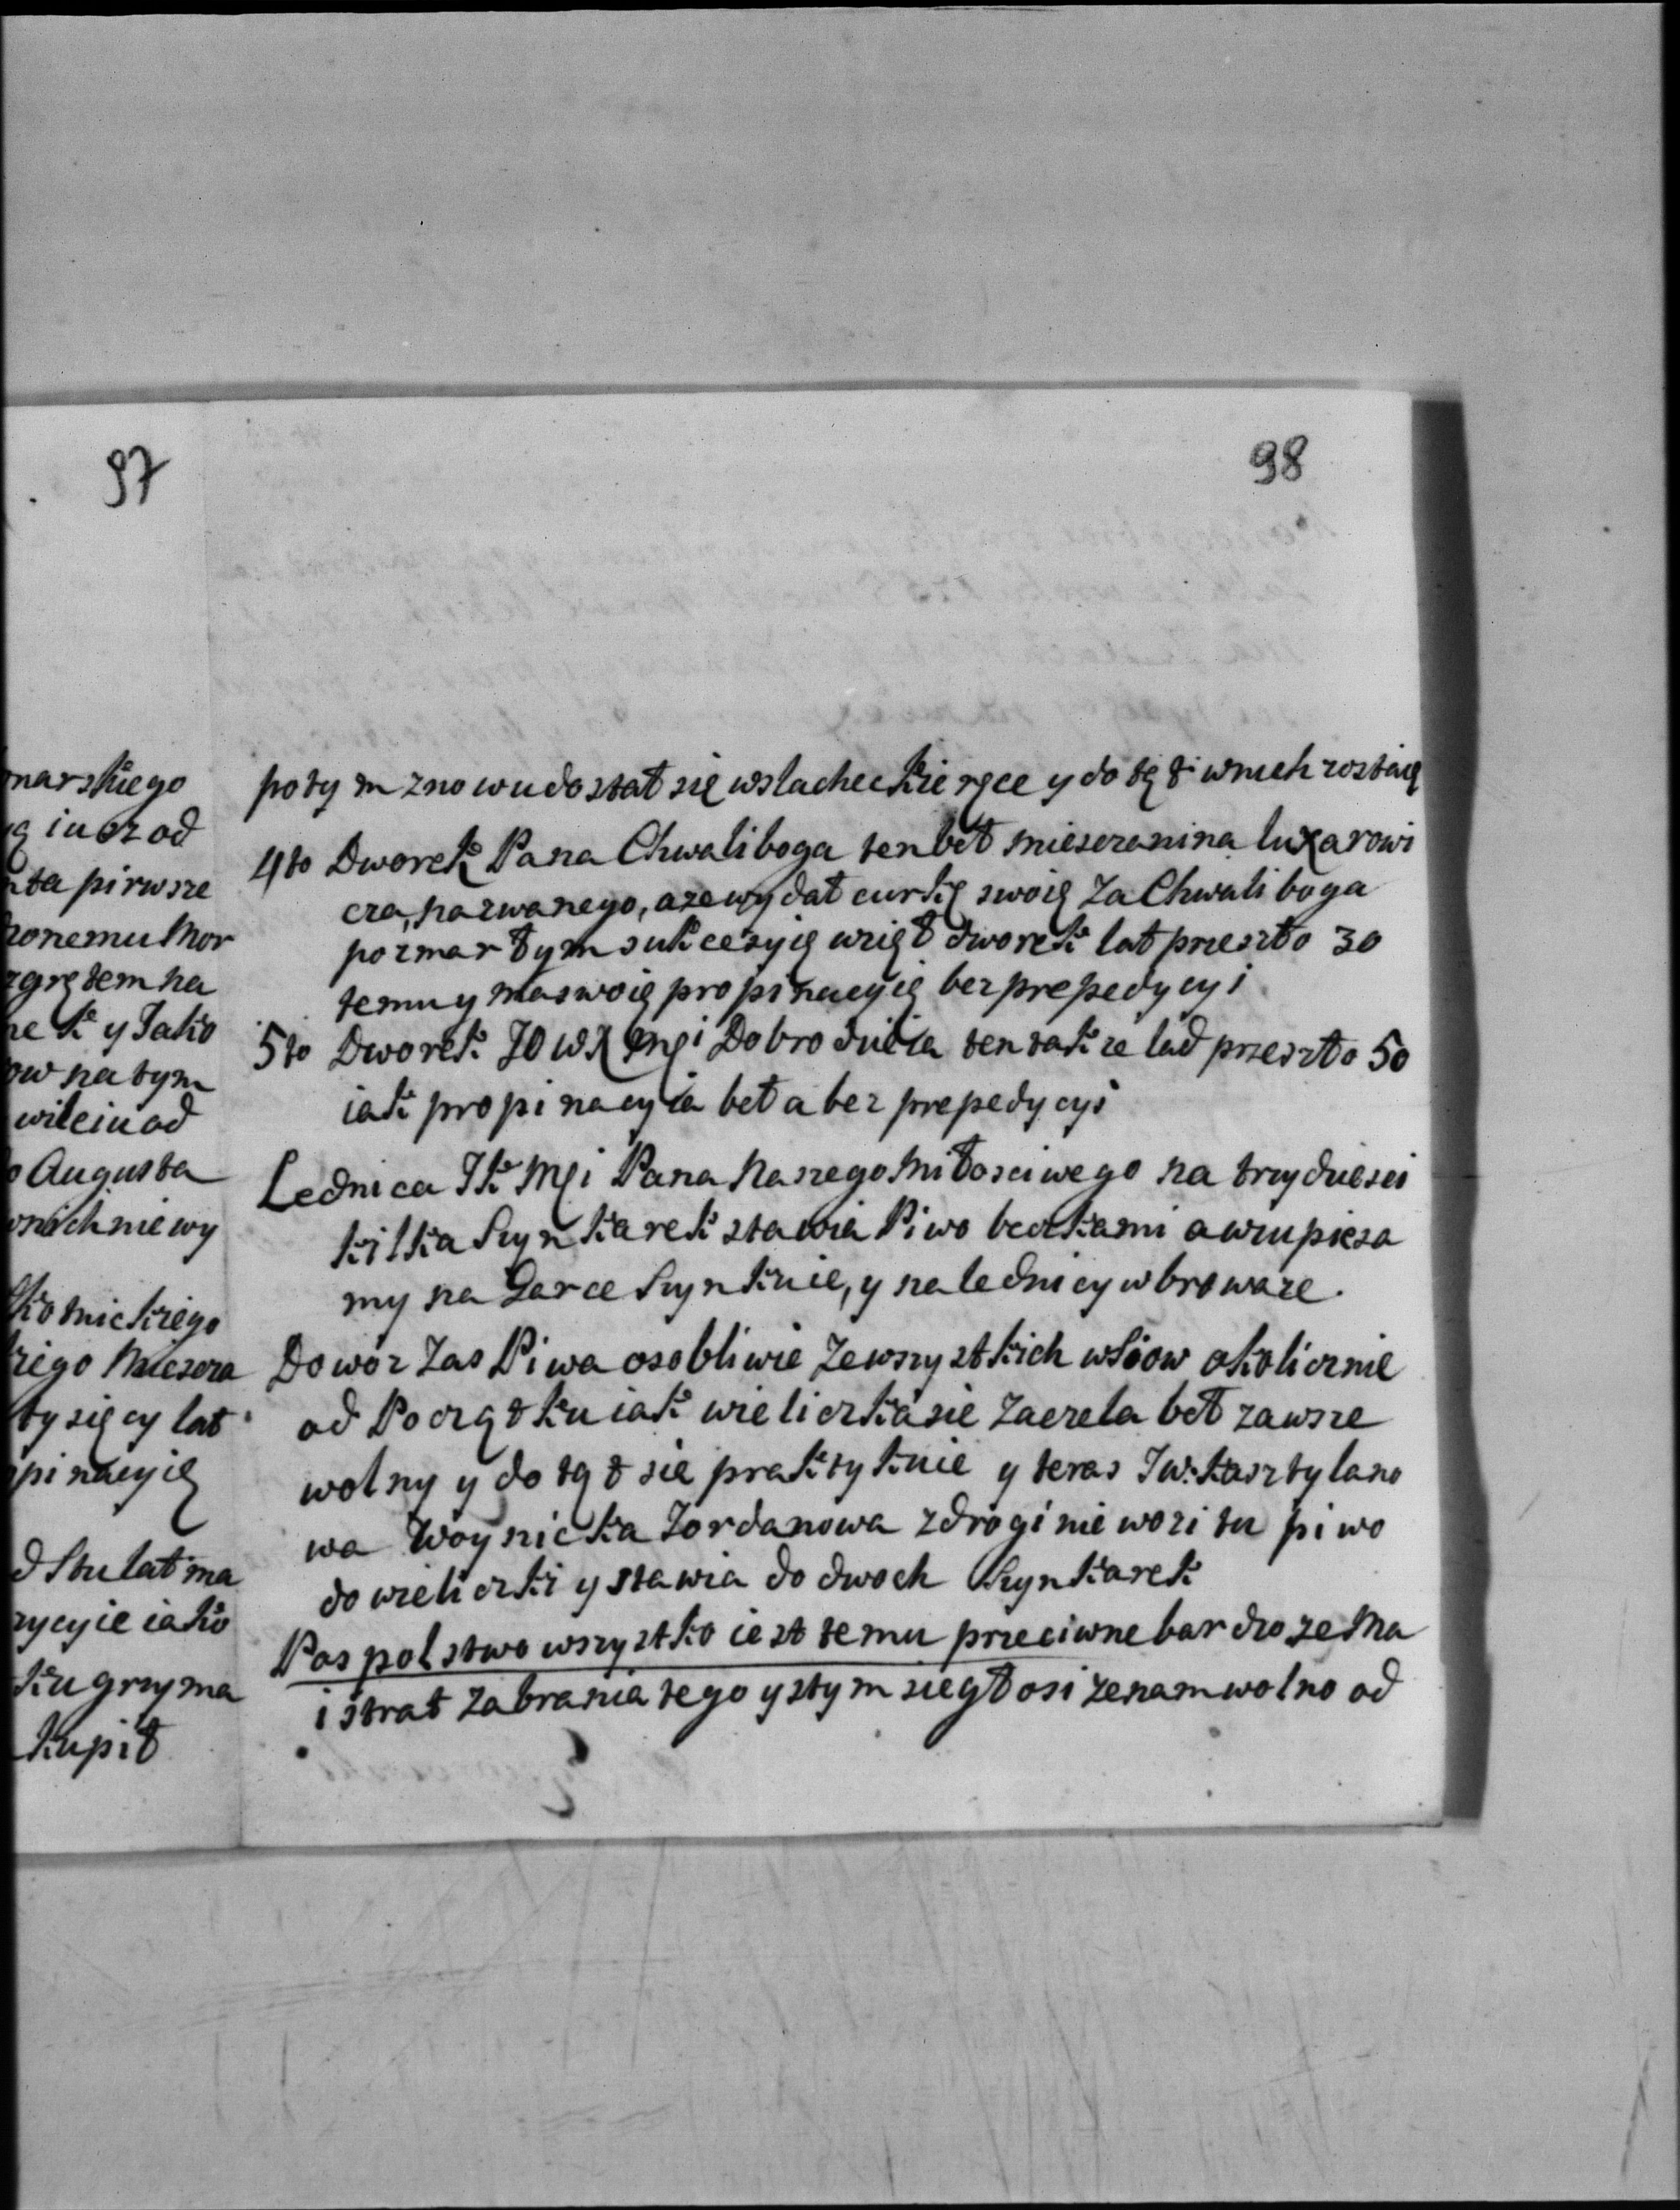 97
marskiego
ią iuez od
nta pirwsze
honemu Mor
zgrętem na
ne k y Jako
ow na tym
wileiu od
o Augusta
wnich nie wy
kiego Miescza
tysięcy lat
pinacyię
d Stu lat ma
zycyie iako
ku grzyma
kupił
98
potym znowu dostał się wslacheckie ręce y do tąt wnich zostaię
4to Dworek Pana Chwaliboga ten beł miesczanina luxarowi
cza, nazwanego, aze wydał curkę swoię za Chwaliboga
po zmarłym sukcesyię wziął dworek lat przeszło 30
temu y ma swoię propinacyię bez prepedycyi
5to Dworek JOWX Mci Dobrodzieia ten takze lad przeszło 50
iak propinacyia beła bez prepedycyi
Lednica Jk Mci Pana Naszego Miłosciwego na trzydziesci
kilka Szynkarek stawia Piwo beczkami a wzupie sa
my na Garce Szynkuie, y na lednicy w browarze.
Dowoz zas Piwa osobliwie Zewszystkich wsiow okolicznie
od Początku iak wieliczka sie zaczela beł zawsze
wolny y do tąt sie praktykuie y teras Jw. kasztylano
wa Woynicka Jordanowa zdrogini wozi tu piwo
do wieliczki y stawia do dwoch Szynkarek
Pospolstwo wszystko iest temu przeciwne bardzo ze Ma
istrat zabrania tego y stym sie głosi ze nam wolno od